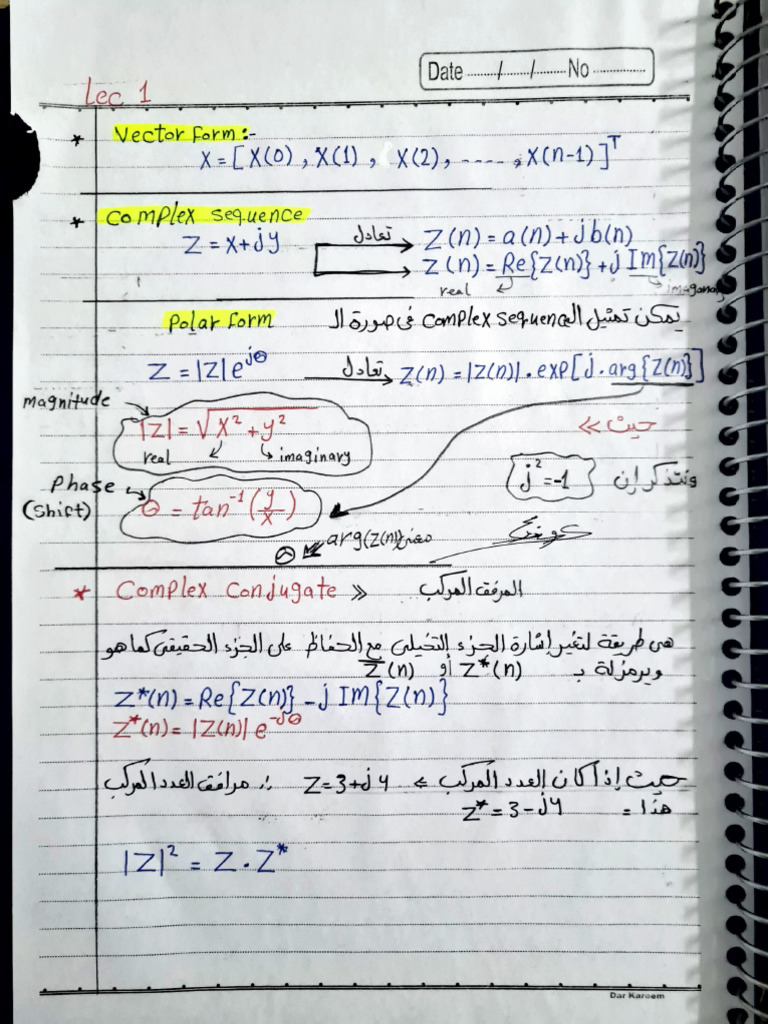 Date ......./......./........ No ..............
Lec 1
* Vector form :-
X = [ X(0) , X(1) , X(2) , ---- , X(n-1) ]ᵀ
* Complex sequence
Z = x+jy تعادل Z(n) = a(n) + j b(n)
Z(n) = Re{Z(n)} + j Im{Z(n)}
real imaginary
Polar form يمكن تمثيل ال complex sequence فى صورة ال
Z = |Z| e^jθ تعادل Z(n) = |Z(n)| . exp[ j . arg{Z(n)} ]
magnitude
|Z| = √x² + y² حيث >>
real imaginary
Phase (Shift) θ = tan⁻¹ (y/x) ونتذكر ان j² = -1
θ معنى arg(Z(n))
* Complex Conjugate >> المرفق المركب
هى طريقة لتغير إشارة الجزء التخيلى مع الحفاظ على الجزء الحقيقى كما هو
ويرمز له بـ Z*(n) أو Z̅(n)
Z*(n) = Re{Z(n)} - j IM{Z(n)}
Z*(n) = |Z(n)| e^-jθ
حيث إذا كان العدد المركب => Z = 3+j4 ∴ مرافق العدد المركب
هذا = Z* = 3-j4
|Z|² = Z . Z*
Dar Kareem